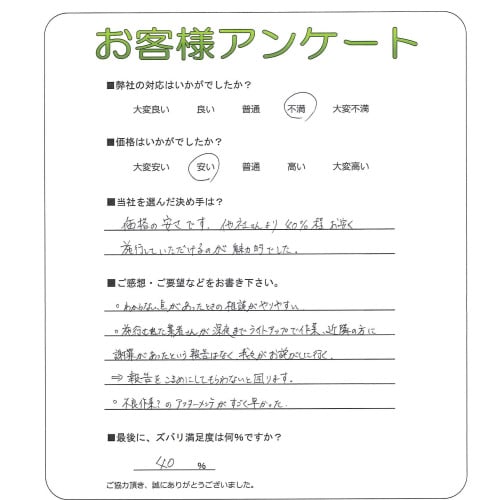 お客様アンケート
■弊社の対応はいかがでしたか？
大変良い 良い 普通 不満 大変不満
■価格はいかがでしたか？
大変安い 安い 普通 高い 大変高い
■当社を選んだ決め手は？
価格の安さです。他社さんより40%程お安く
施行していただけるのが魅力的でした。
■ご感想・ご要望などをお書き下さい。
○わからない点があったときの相談がやりやすい
○施行された業者さんが深夜までライトアップで作業、近隣の方に
謝罪があったという報告はなく我々がお詫びしに行く、
⇒報告をこまめにしてもらわないと困ります。
○不良作業？のアフターメンテがすごく早かった。
■最後に、ズバリ満足度は何%ですか？
40 %
ご協力頂き、誠にありがとうございました。